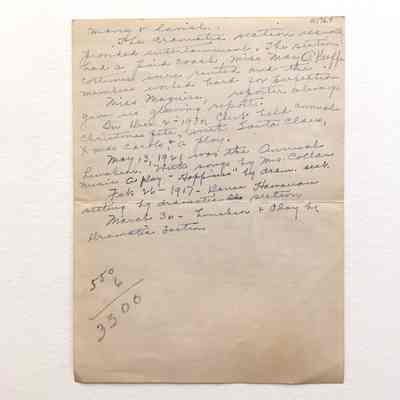 many & lavish.
The dramatic section usually
provided entertainment. The section
had a paid coach, Miss May O'Keeffe
costumes were rented and the
members worked hard for perfection
Miss Maguire, reporter always
gave us glowing reports.
On Dec 2 - 1920 Club held annual
Christmas fete, with Santa Claus,
Xmas carols, & a play.
May 13, 1921 was the Annual
Luncheon, with songs by Mrs. Collar
music & play - "Happiness" by dram. sect.
Feb 26 - 1917 - Dance Hawaiian
setting by dramatic section
March 30 - Luncheon & Play by
Dramatic Section
550
6
3300